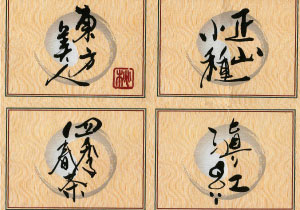 東方
美人
正山
小種
四季
春茶
滇紅